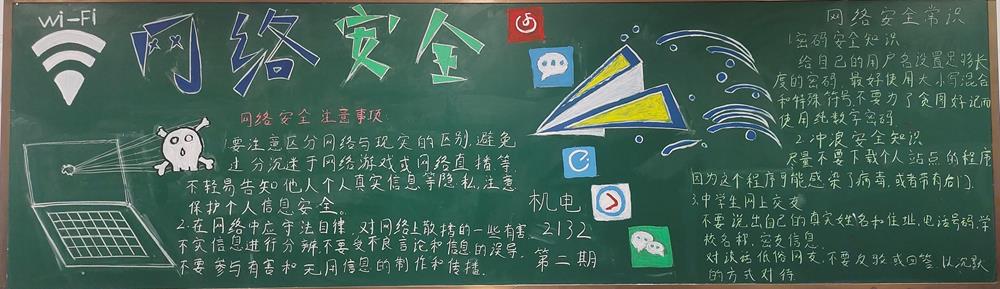 Wi-Fi
网络安全
网络安全注意事项
1.要注意区分网络与现实的区别,避免
过分沉迷于网络游戏或网络直播等
不轻易告知他人个人真实信息等隐私,注意
保护个人信息安全。
2.在网络中应守法自律,对网络上散播的一些有害、
不实信息进行分辨,不要受不良言论和信息的误导,
不要参与有害和无用信息的制作和传播.
机电
2132
第二期
网络安全常识
1.密码安全知识
给自己的用户名设置足够长
度的密码,最好使用大小写混合
和特殊符号,不要为了贪图好记而
使用纯数字密码
2.冲浪安全知识
尽量不要下载个人站点的程序
因为这个程序可能感染了病毒,或者带有后门.
3.中学生网上交友
不要说出自己的真实姓名和住址,电话号码,学
校名称,密友信息.
对谈话低俗网友,不要反驳或回答,以沉默
的方式对待.